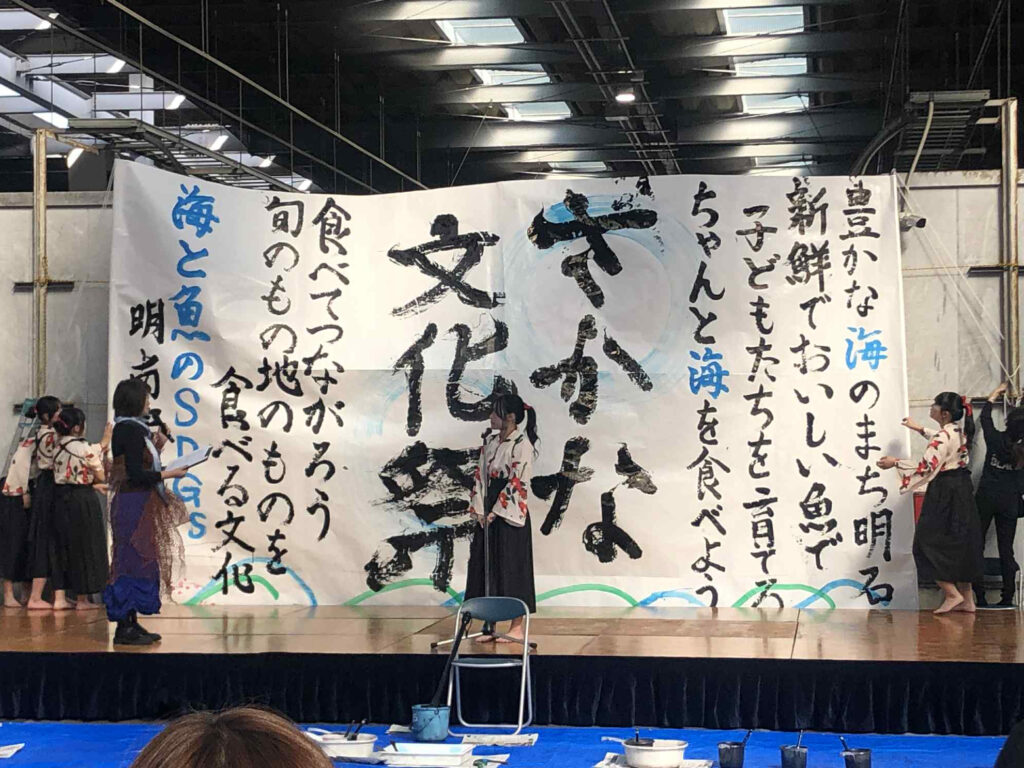 豊かな海のまち明石
新鮮でおいしい魚で
子どもたちを育てろ
ちゃんと海を食べよう
さかな
文化祭
食べてつながろう
旬のもの地のものを
食べる文化
海と魚のSDGs
明